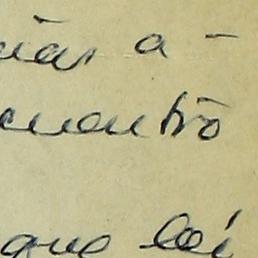 ias a -
cuentro
que leí